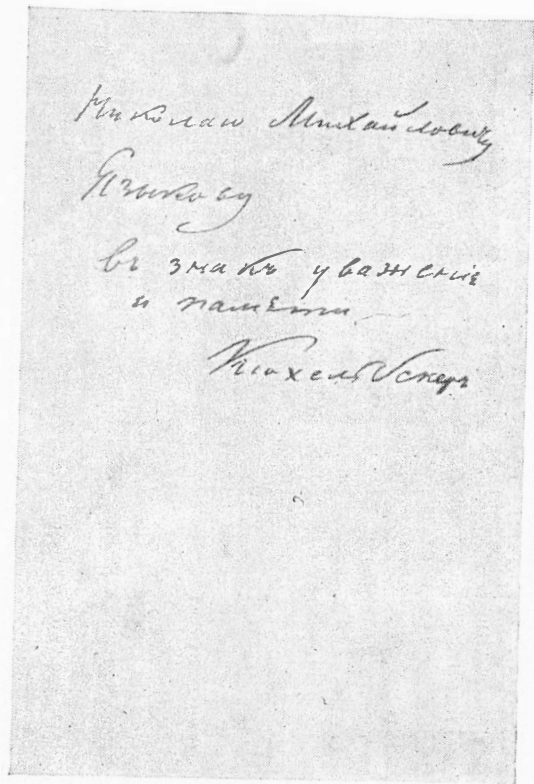 Николаю Михайловичу
Языкову
въ знакъ уваженiя
и памяти
Кюхельбекеръ